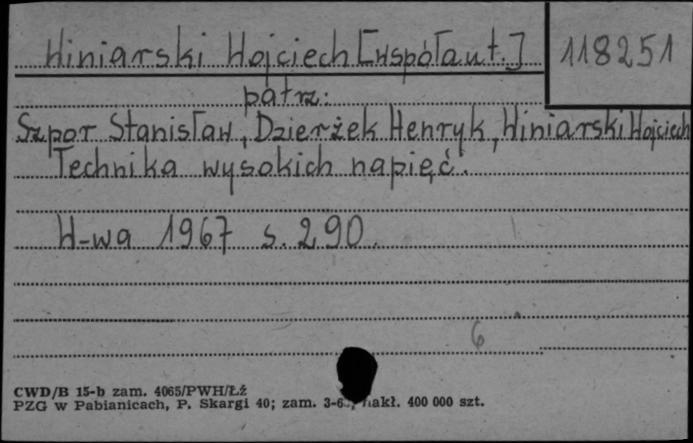 Winiarski Wojciech [współaut.]
118251
patrz:
Szpor Stanisław, Dzierżek Henryk, Winiarski Wojciech
Technika wysokich napięć.
W-wa 1967 s. 290.
6
CWD/B 15-b zam. 4065/PWH/Łź
PZG w Pabianicach, P. Skargi 40; zam. nakł. 400 000 szt.